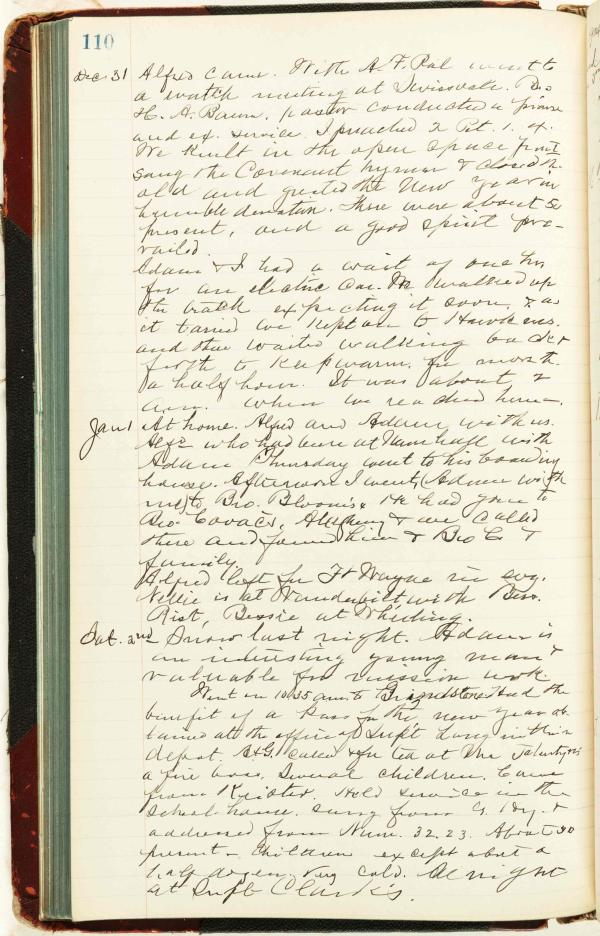 110
Dec 31 Alfred came. With A. F. Pal went to
a watch meeting at Swissvale. Bro
H. A. Baum, pastor conducted a
and ex. service. I preached 2 Pet. 1. 4.
We knelt in the open space front
sang the Covenant hymn & closed the
old and greeted the New Year in
humble devotion. There were about 50
present, and a good spirit pre-
vailed.
Adam & I had a wait of one hr
for an electric car. We walked up
the track expecting it soon, & as
it tarried we kept on to Hawkins.
and then waited walking back &
forth to keep warm for more th.
a half hour. It was about 2
a.m. when we reached home.
Jan 1 At home. Alfred and Adam with us.
who had been at with
Adam Thursday went to his boarding
house. Afternoon I went (Adam with
me) to Bro. Bloom's & He had gone to
Bro. Allegheny & we called
there and found him & Bro C. &
family.
Alfred left for Ft Wayne in evg.
Nellie is at Vanderbilt, with Bess.
Rist, Bessie at Wheeling.
Sat. 2nd Snow last night. Adam is
an interesting young man &
valuable for mission work.
Went on 10 35 a.m. to had the
benefit of a Pass for the new year ob-
tained at the office of Supt. Long in the
depot. called & for tea at
a fire boss. Several children. Came
from Held service in the
school-house. Sung from G. Hy. &
addressed from Num. 32. 23. About 30
present - Children except about a
half dozen. Very cold. All night
at Supt Clark's.